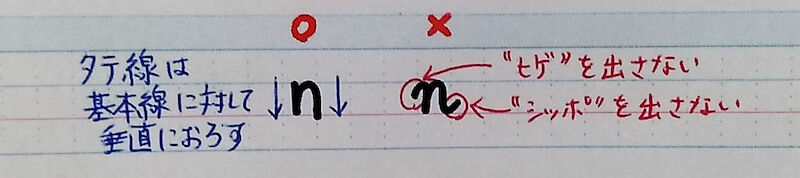 ○ ×
タテ線は
基本線に対して
垂直におろす
↓n↓
n
"ヒゲ"を出さない
"シッポ"を出さない